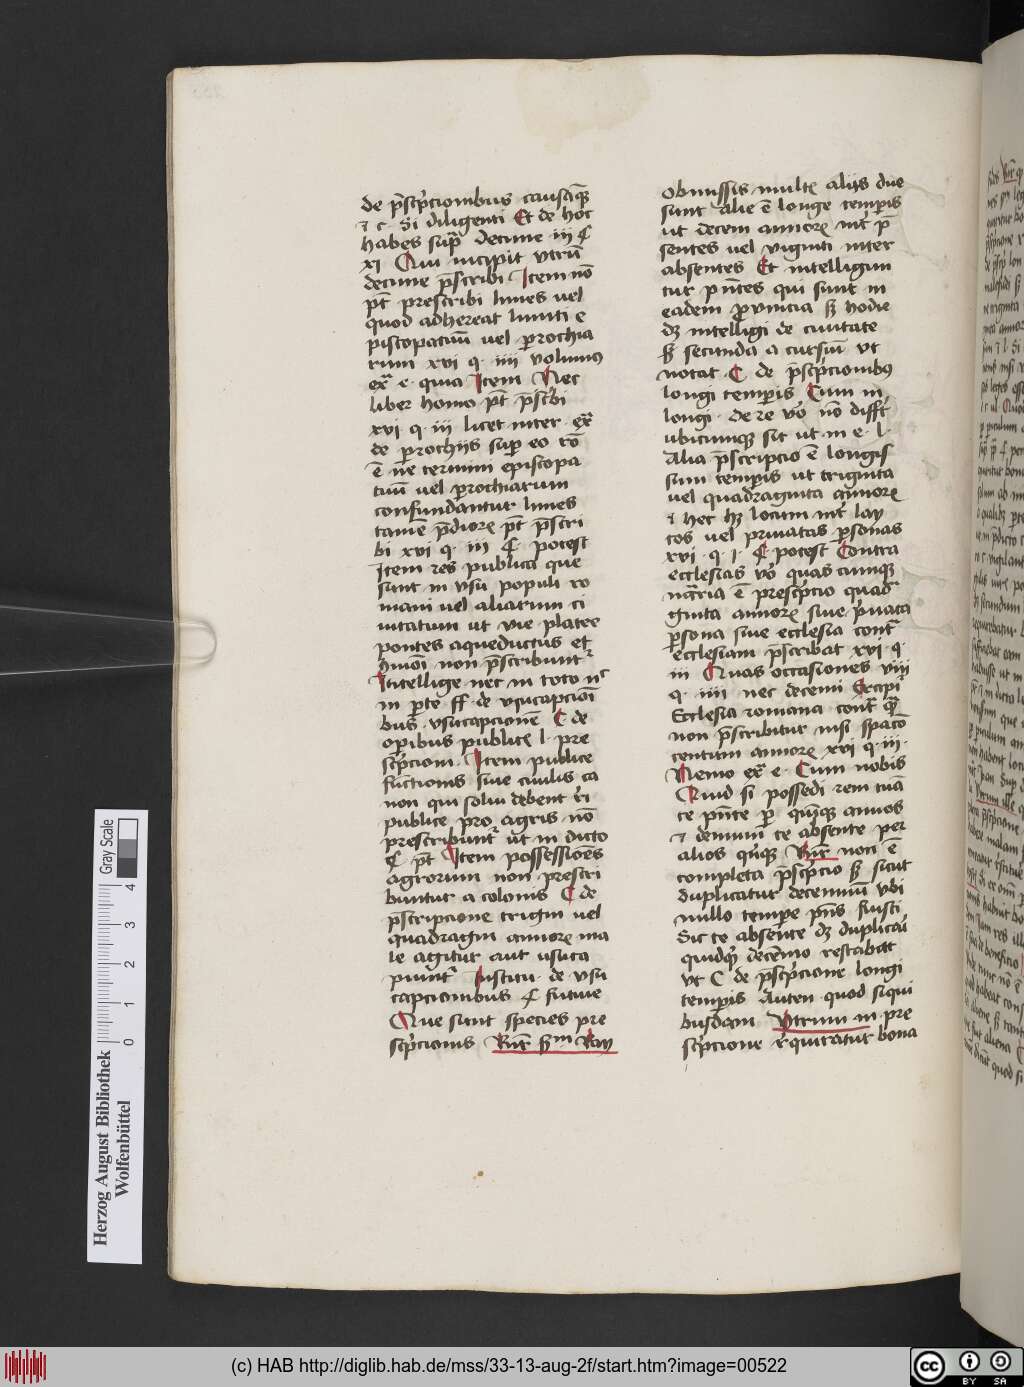 de p̄scͥpcionibus causāqꝫ
⁊ c Si diligenti Et de hoc
habes suꝑ decime iij ꝗ
xi Qui incipit vtrū
decime p̄scribi Item nō
pn̄t prescribi limes vel
quod adhereat limiti e
piscopatuū vel parochia
rum xvi q. iiii volumus
exͣ e. quia Item Nec
liber homo pt̄ p̄scͥbi
xvi q. iii licet inter. exͣ
de parochijs super eo cō
ē ne termini episcopa
tuū vel parochiarum
confundantur limes
tamē p̄dioꝝ pt̄ p̄scri
bi xvi q. iii ꝗ. potest
Item res publica que
sunt in vsu populi ro
mani vel aliarum ci
uitatum ut vie platee
pontes aqueductus et
non p̄scribuntͬ
Intellige nec in toto nͨ
in ꝑte ff de vsucapcioni
bus. vsucapcionē C de
operibus publicꝭ l. pre
scͥpcioni. Item publice
functionis siue ciuilis ca
non qui solui debent rͤi
publice pro agris nō
prescribuntͬ ut in dicto
ꝗ pt̄ Item possessiōes
agrorum non prescri
buntur a colonis C de
p̄scripcione trigin vel
quadragin annoꝝ ma
le agitur aut usuca
piuntͬ Institu. de vsu
capcionibus ꝗ furiue
Que sunt species pre
scͥpcionis Rn̄r ẜm Ray
obmissis multꝭ alijs due
sunt alie ē longe temporis
ut decem annoꝝ int̄ p̄
sentes vel viginti inter
absentes Et intelligun
tur pn̄tes qui sunt in
eadem prouincia ẜ hodie
dꝫ intelligi de ciuitate
ẜ secunda a cursiū vt
notat C de p̄scͥpcionibꝰ
longi temporis Cum in
longi. de re vͦ nō difft̄
ubicumqꝫ sit ut in e. l.
Alia p̄scriptio ē longis
simi temporis ut triginta
vel quadraginta annoꝝ
⁊ hec hꝫ locum int̄ lay
cos vel priuatas ꝑsonas
xvi. q. i. ꝗ potest Contra
ecclesias vͦ quascumqꝫ
nc̄ria ē prescͥptio quadͬ
ginta annoꝝ siue pͥuata
ꝑsona siue ecclesia contͬ
ecclesiam p̄scribat xvi q.
iii Quas occasiones viij
q. iiii nec decemi Excipiͬ
Ecclesia romana contͬ quā
non p̄scribitur nisi spacō
centum annoꝝ xvi q. iii.
Nemo exͣ e. Cum nobis
Quid si possedi rem tuā
te pn̄te ꝑ qͥnqꝫ annos
⁊ demum te absente per
alios qͥnqꝫ Rn̄r non ē
completa p̄scͥpcio ẜ sicut
duplicatur decenniū vbi
nullo tempore pn̄s fuisti
Sic te absente dꝫ duplicari
quidqͥd decēnio restabat
vt C de p̄scͥpcione longi
temporis Auten quod siqui
busdam Vtrum in pre
scͥpcione rͤquiratur bona
Herzog August Bibliothek
Wolfenbüttel
Gray Scale
0 1 2 3 4
(c) HAB http://diglib.hab.de/mss/33-13-aug-2f/start.htm?image=00522
cc BY SA